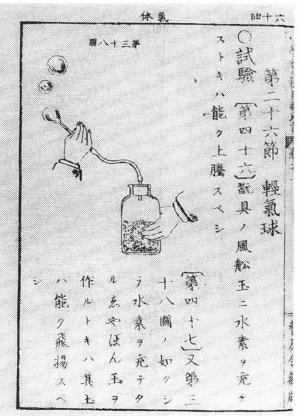 四十六
氣体
第二十六節　輕氣球
○試驗〔第四十六〕翫具ノ風舩玉ニ水素ヲ充タ
ストキハ能ク上騰スベシ
第三十八圖
〔第四十七〕又第三
十八圖ノ如クシ
テ水素ヲ充テタ
ルゑやぼん玉ヲ
作ルトキハ其玉
ハ能ク飛揚スベ
シ